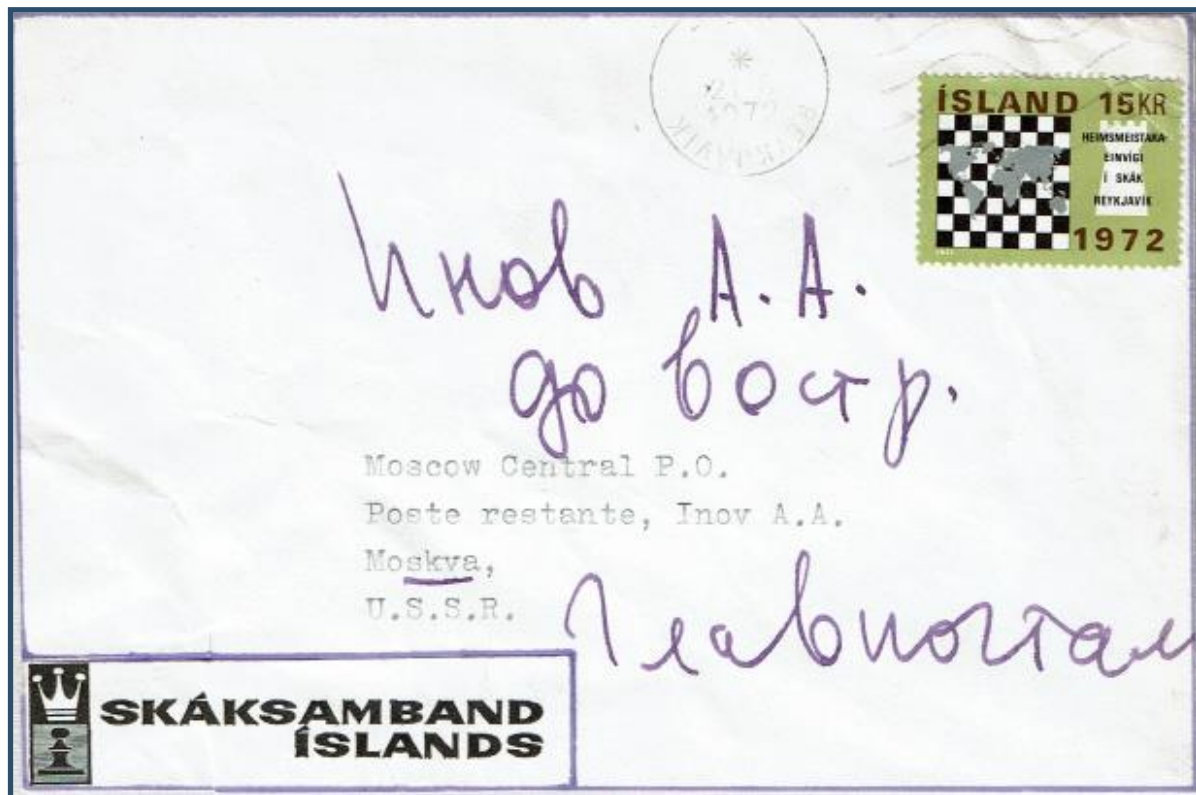 REYKJAVÍK
ÍSLAND 15KR
HEIMSMEISTARA-
EINVÍGI
Í SKÁK
REYKJAVÍK
1972
Инов А.А.
до востр.
Moscow Central P.O.
Poste restante, Inov A.A.
Moskva,
U.S.S.R.
Главпочтам
SKÁKSAMBAND
ÍSLANDS